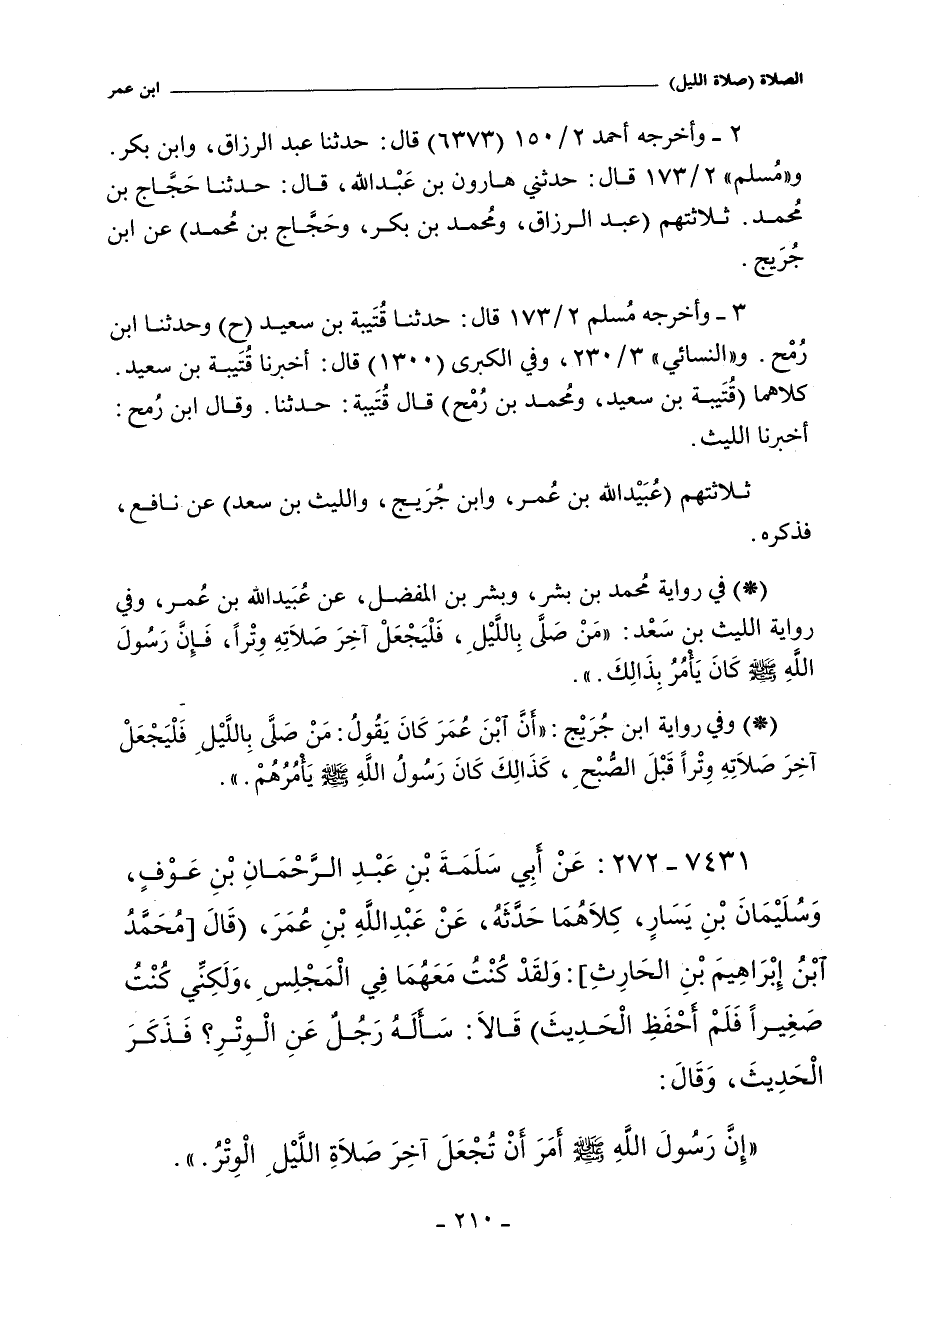 الصلاة (صلاة الليل) ابن عمر
٢ ـ وأخرجه أحمد ١٥٠/٢ (٦٣٧٣) قال: حدثنا عبد الرزاق، وابن بكر.
و«مُسلم» ١٧٣/٢ قال: حدثني هارون بن عَبْدالله، قال: حدثنا حَجَّاج بن
مُحمد. ثلاثتهم (عبد الرزاق، ومُحمد بن بكر، وحَجَّاج بن مُحمد) عن ابن
جُرَيج.
٣ ـ وأخرجه مُسلم ١٧٣/٢ قال: حدثنا قُتَيبة بن سعيد (ح) وحدثنا ابن
رُمْح. و«النسائي» ٢٣٠/٣، وفي الكبرى (١٣٠٠) قال: أخبرنا قُتَيبة بن سعيد.
كلاهما (قُتَيبة بن سعيد، ومُحمد بن رُمْح) قال قُتَيبة: حدثنا. وقال ابن رُمح:
أخبرنا الليث.
ثلاثتهم (عُبَيْدالله بن عُمر، وابن جُرَيج، والليث بن سعد) عن نافع،
فذكره.
(*) في رواية مُحمد بن بشر، وبشر بن المفضل، عن عُبَيدالله بن عُمر، وفي
رواية الليث بن سَعْد: «مَنْ صَلَّى بِاللَّيْلِ، فَلْيَجْعَلْ آخِرَ صَلاَتِهِ وِتْراً، فَإِنَّ رَسُولَ
اللَّهِ ﷺ كَانَ يَأْمُرُ بِذَالِكَ.».
(*) وفي رواية ابن جُرَيْج: «أَنَّ ٱبْنَ عُمَرَ كَانَ يَقُولُ: مَنْ صَلَّى بِاللَّيْلِ فَلْيَجْعَلْ
آخِرَ صَلاَتِهِ وِتْراً قَبْلَ الصُّبْحِ، كَذَالِكَ كَانَ رَسُولُ اللَّهِ ﷺ يَأْمُرُهُمْ.».
٧٤٣١ ـ ٢٧٢: عَنْ أَبِي سَلَمَةَ بْنِ عَبْدِ الرَّحْمَانِ بْنِ عَوْفٍ،
وَسُلَيْمَانَ بْنِ يَسَارٍ، كِلاَهُمَا حَدَّثَهُ، عَنْ عَبْدِاللَّهِ بْنِ عُمَرَ، (قَالَ [مُحَمَّدُ
ٱبْنُ إِبْرَاهِيمَ بْنِ الحَارِثِ]: وَلَقَدْ كُنْتُ مَعَهُمَا فِي الْمَجْلِسِ، وَلَكِنِّي كُنْتُ
صَغِيراً فَلَمْ أَحْفَظِ الْحَدِيثَ) قَالاَ: سَأَلَهُ رَجُلٌ عَنِ الْوِتْرِ؟ فَذَكَرَ
الْحَدِيثَ، وَقَالَ:
«إِنَّ رَسُولَ اللَّهِ ﷺ أَمَرَ أَنْ تُجْعَلَ آخِرَ صَلاَةِ اللَّيْلِ الْوِتْرُ.».
ـ ٢١٠ ـ